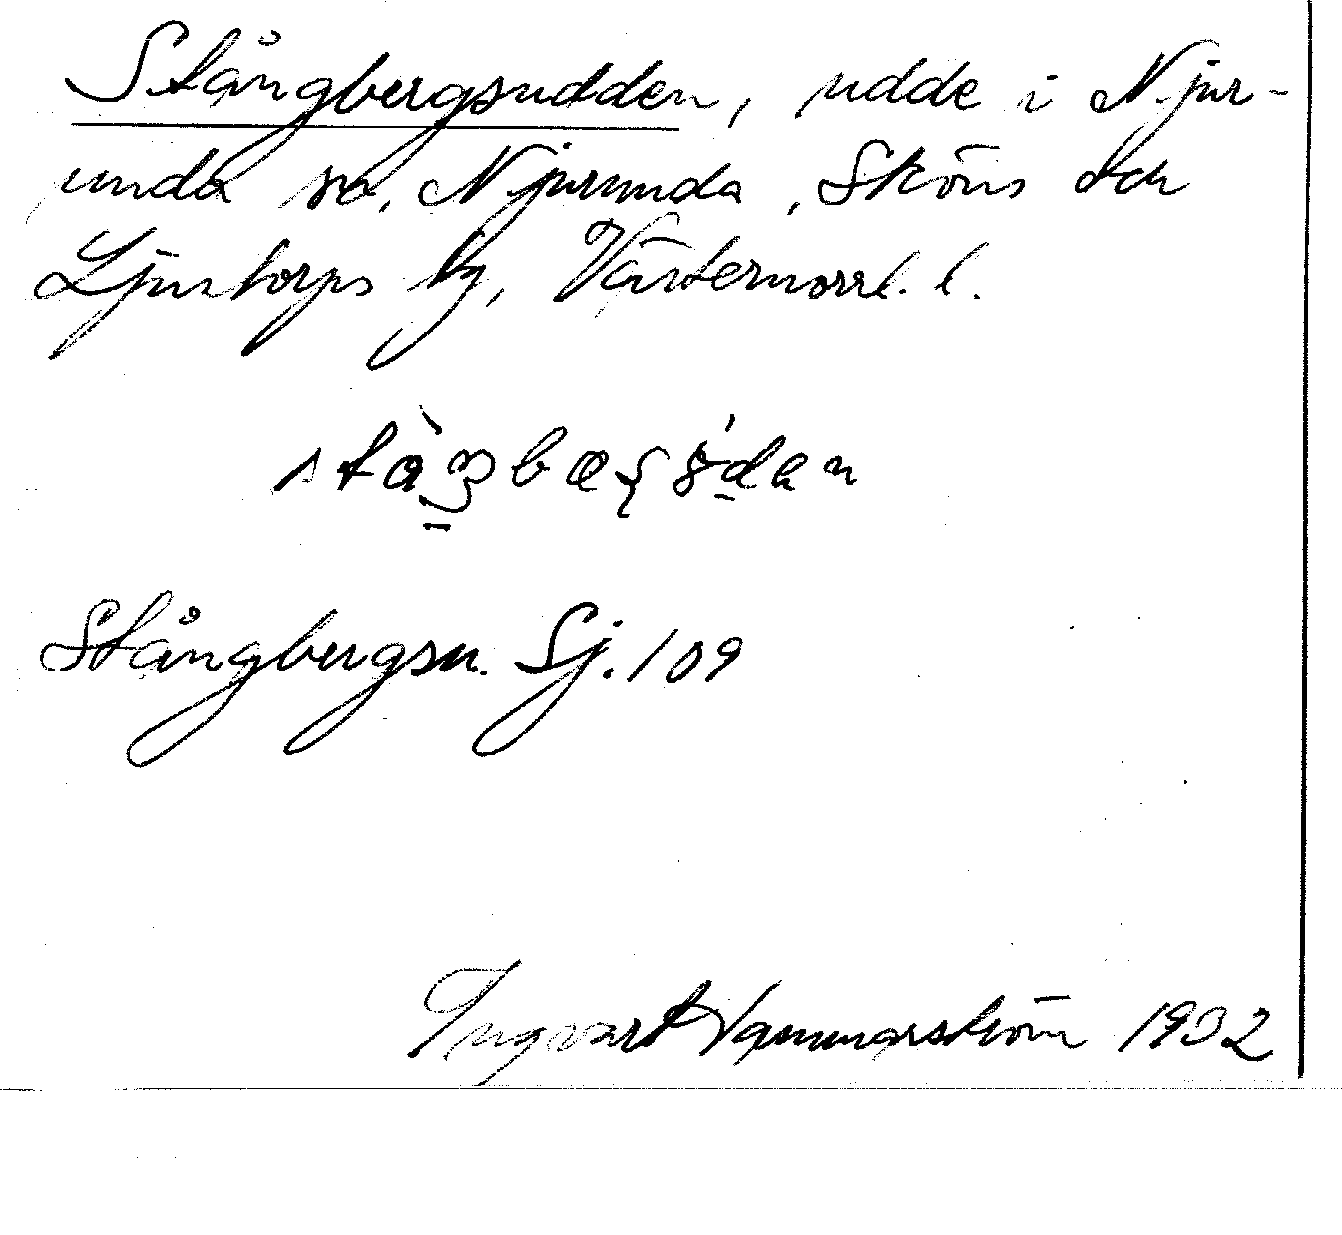 Stångbergsudden, udde i Njur-
unda sn, Njurunda, Sköns och
Ljustorps tg, Västernorrl. l.
Stångbergsu. Sj. 109
Ingvart Hammarström 1932